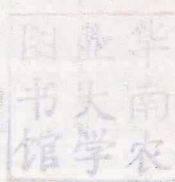 华南农
业大学
图书馆